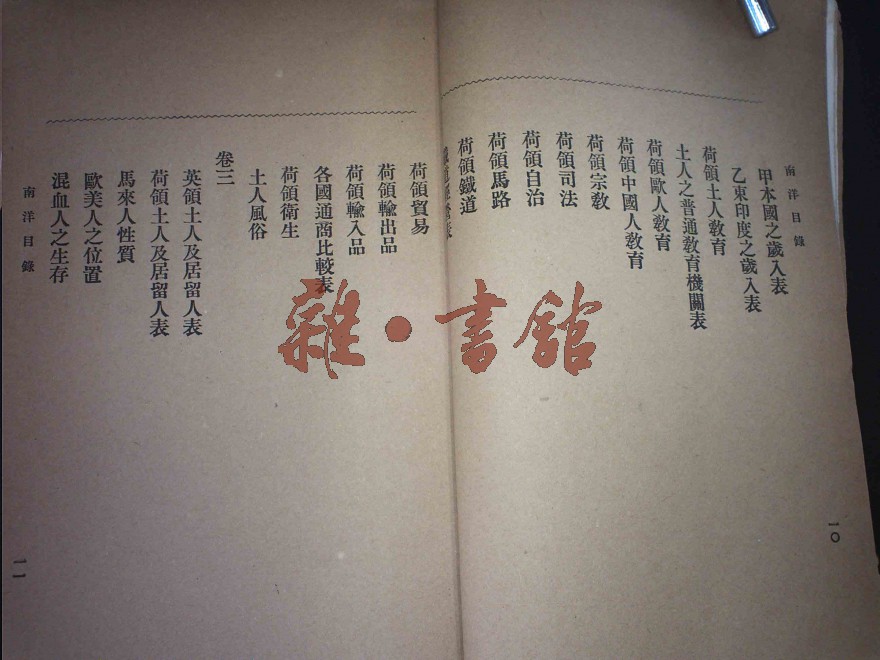 南洋目錄
甲本國之歲入表
乙東印度之歲入表
荷領土人教育
土人之普通教育機關表
荷領歐人教育
荷領中國人教育
荷領宗教
荷領司法
荷領自治
荷領馬路
荷領鐵道
一〇
荷領貿易
荷領輸出品
荷領輸入品
各國通商比較表
荷領衛生
土人風俗
卷三
英領土人及居留人表
荷領土人及居留人表
馬來人性質
歐美人之位置
混血人之生存
南洋目錄
一一
雜·書館